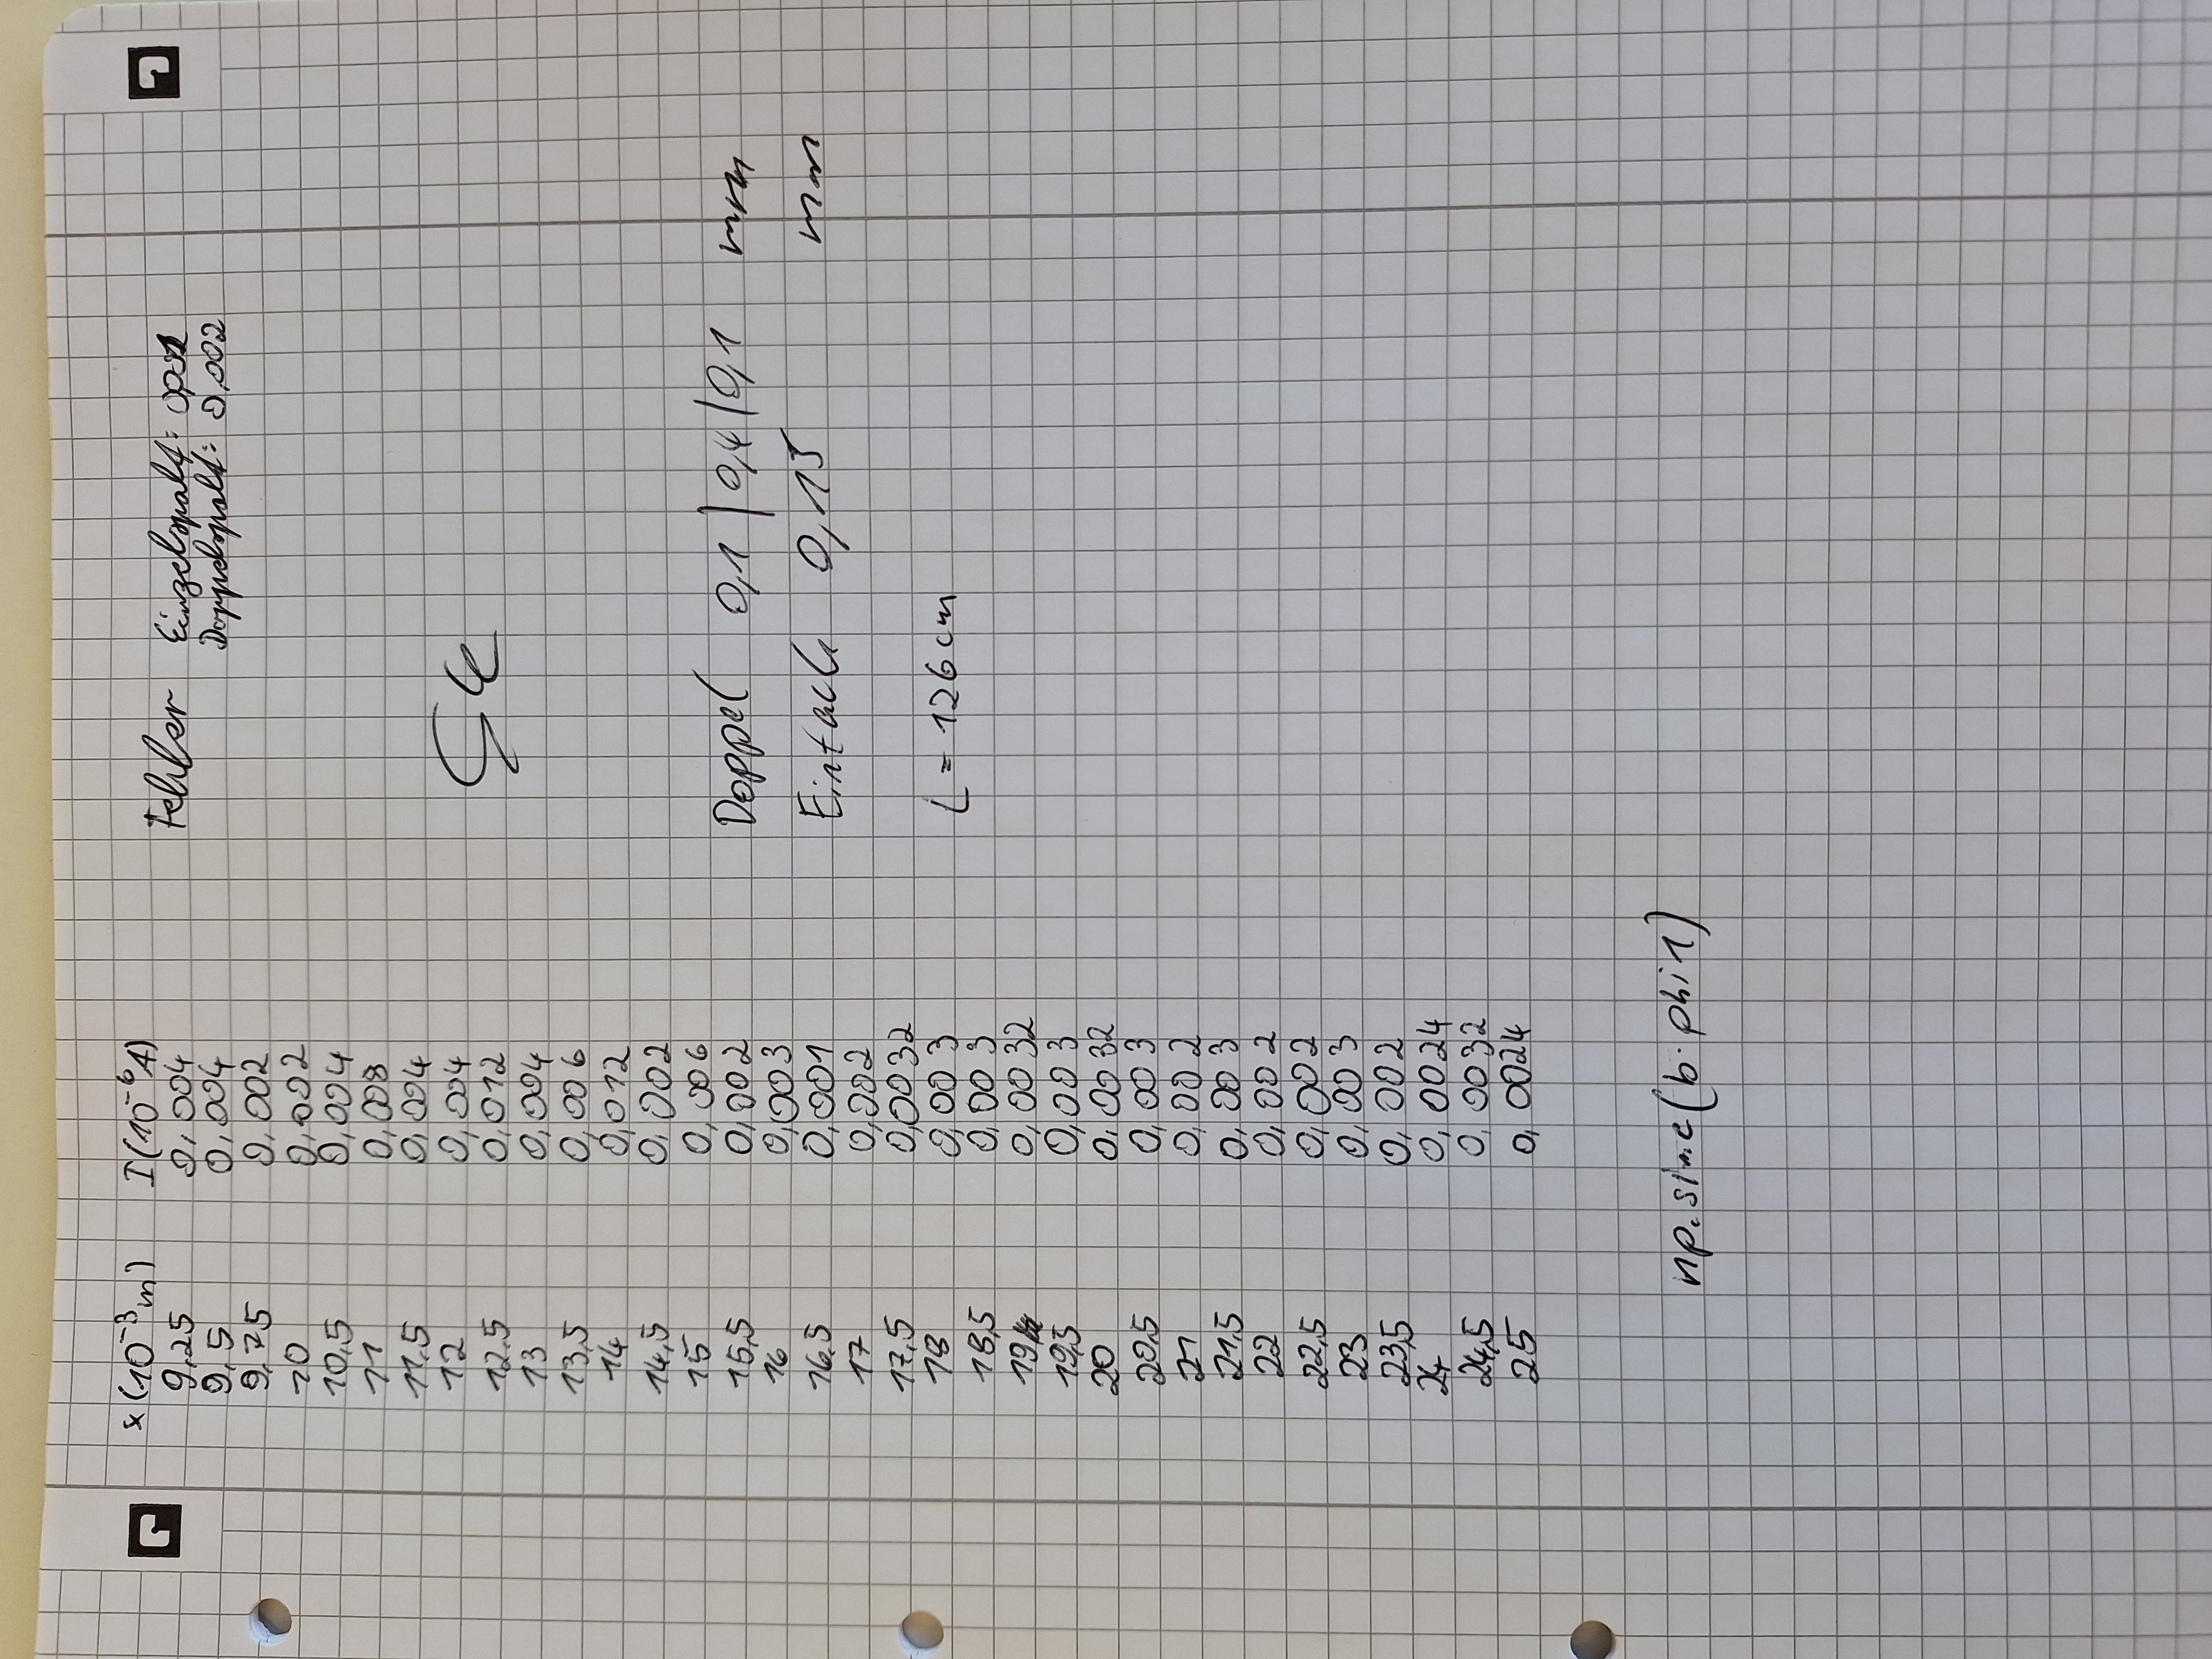 x (10⁻³m) I (10⁻⁶A)
9,25 0,004
9,5 0,004
9,75 0,002
10 0,002
10,5 0,004
11 0,008
11,5 0,004
12 0,004
12,5 0,012
13 0,004
13,5 0,006
14 0,012
14,5 0,002
15 0,006
15,5 0,002
16 0,003
16,5 0,001
17 0,002
17,5 0,0032
18 0,003
18,5 0,003
19 0,0032
19,5 0,003
20 0,0032
20,5 0,003
21 0,002
21,5 0,003
22 0,002
22,5 0,002
23 0,003
23,5 0,002
24 0,0024
24,5 0,0032
25 0,0024
np.sinc(b·phi1)
Fehler Einzelspalt:
Doppelspalt: 0,002
Doppel 0,1 | 0,4 | 0,1 mm
Einfach 0,15 mm
L = 126 cm